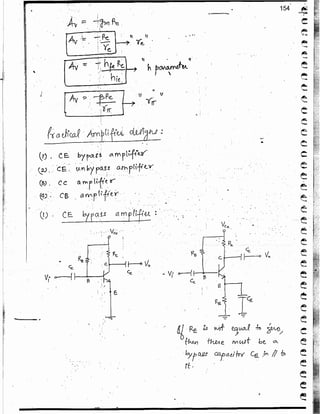 154
Av = -gm Rc
Av = -Rc / re → " re "
Av = -hfe Rc / hie → " h parameter "
Av = -βRc / rπ → " rπ "
Practical Amplifier designs :
(1). CE bypass amplifier
(2). CE. unbypass amplifier
(3). CC amplifier
(4). CB amplifier
(1) . CE bypass amplifier :
Vcc Vcc
RB RC C CC Vo
CC Vi B E
RB RC C CC Vo
Vi CC B E
RE CE
If RE is not equal to zero,
then there must be a
bypass capacitor CE in // to
it.